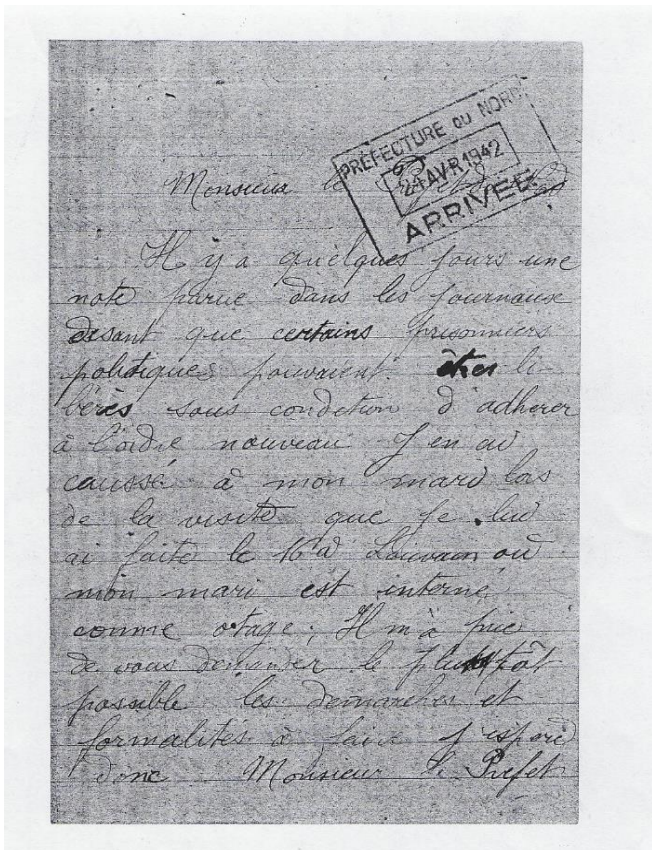 PRÉFECTURE DU NORD
21 AVR 1942
ARRIVÉE
Monsieur le
Il y a quelques jours une
note parue dans les journaux
disant que certains prisonniers
politiques pouvaient êtres li-
bérés sous condition d'adherer
à l'ordre nouveau J'en ai
caussé à mon mari lors
de la visite que je lui
ai faite le 16 à Louvain où
mon mari est interné
comme otage; Il m'à prié
de vous demander le plus tôt
possible les demarches et
formalités à faire J'espère
donc Monsieur le Préfet